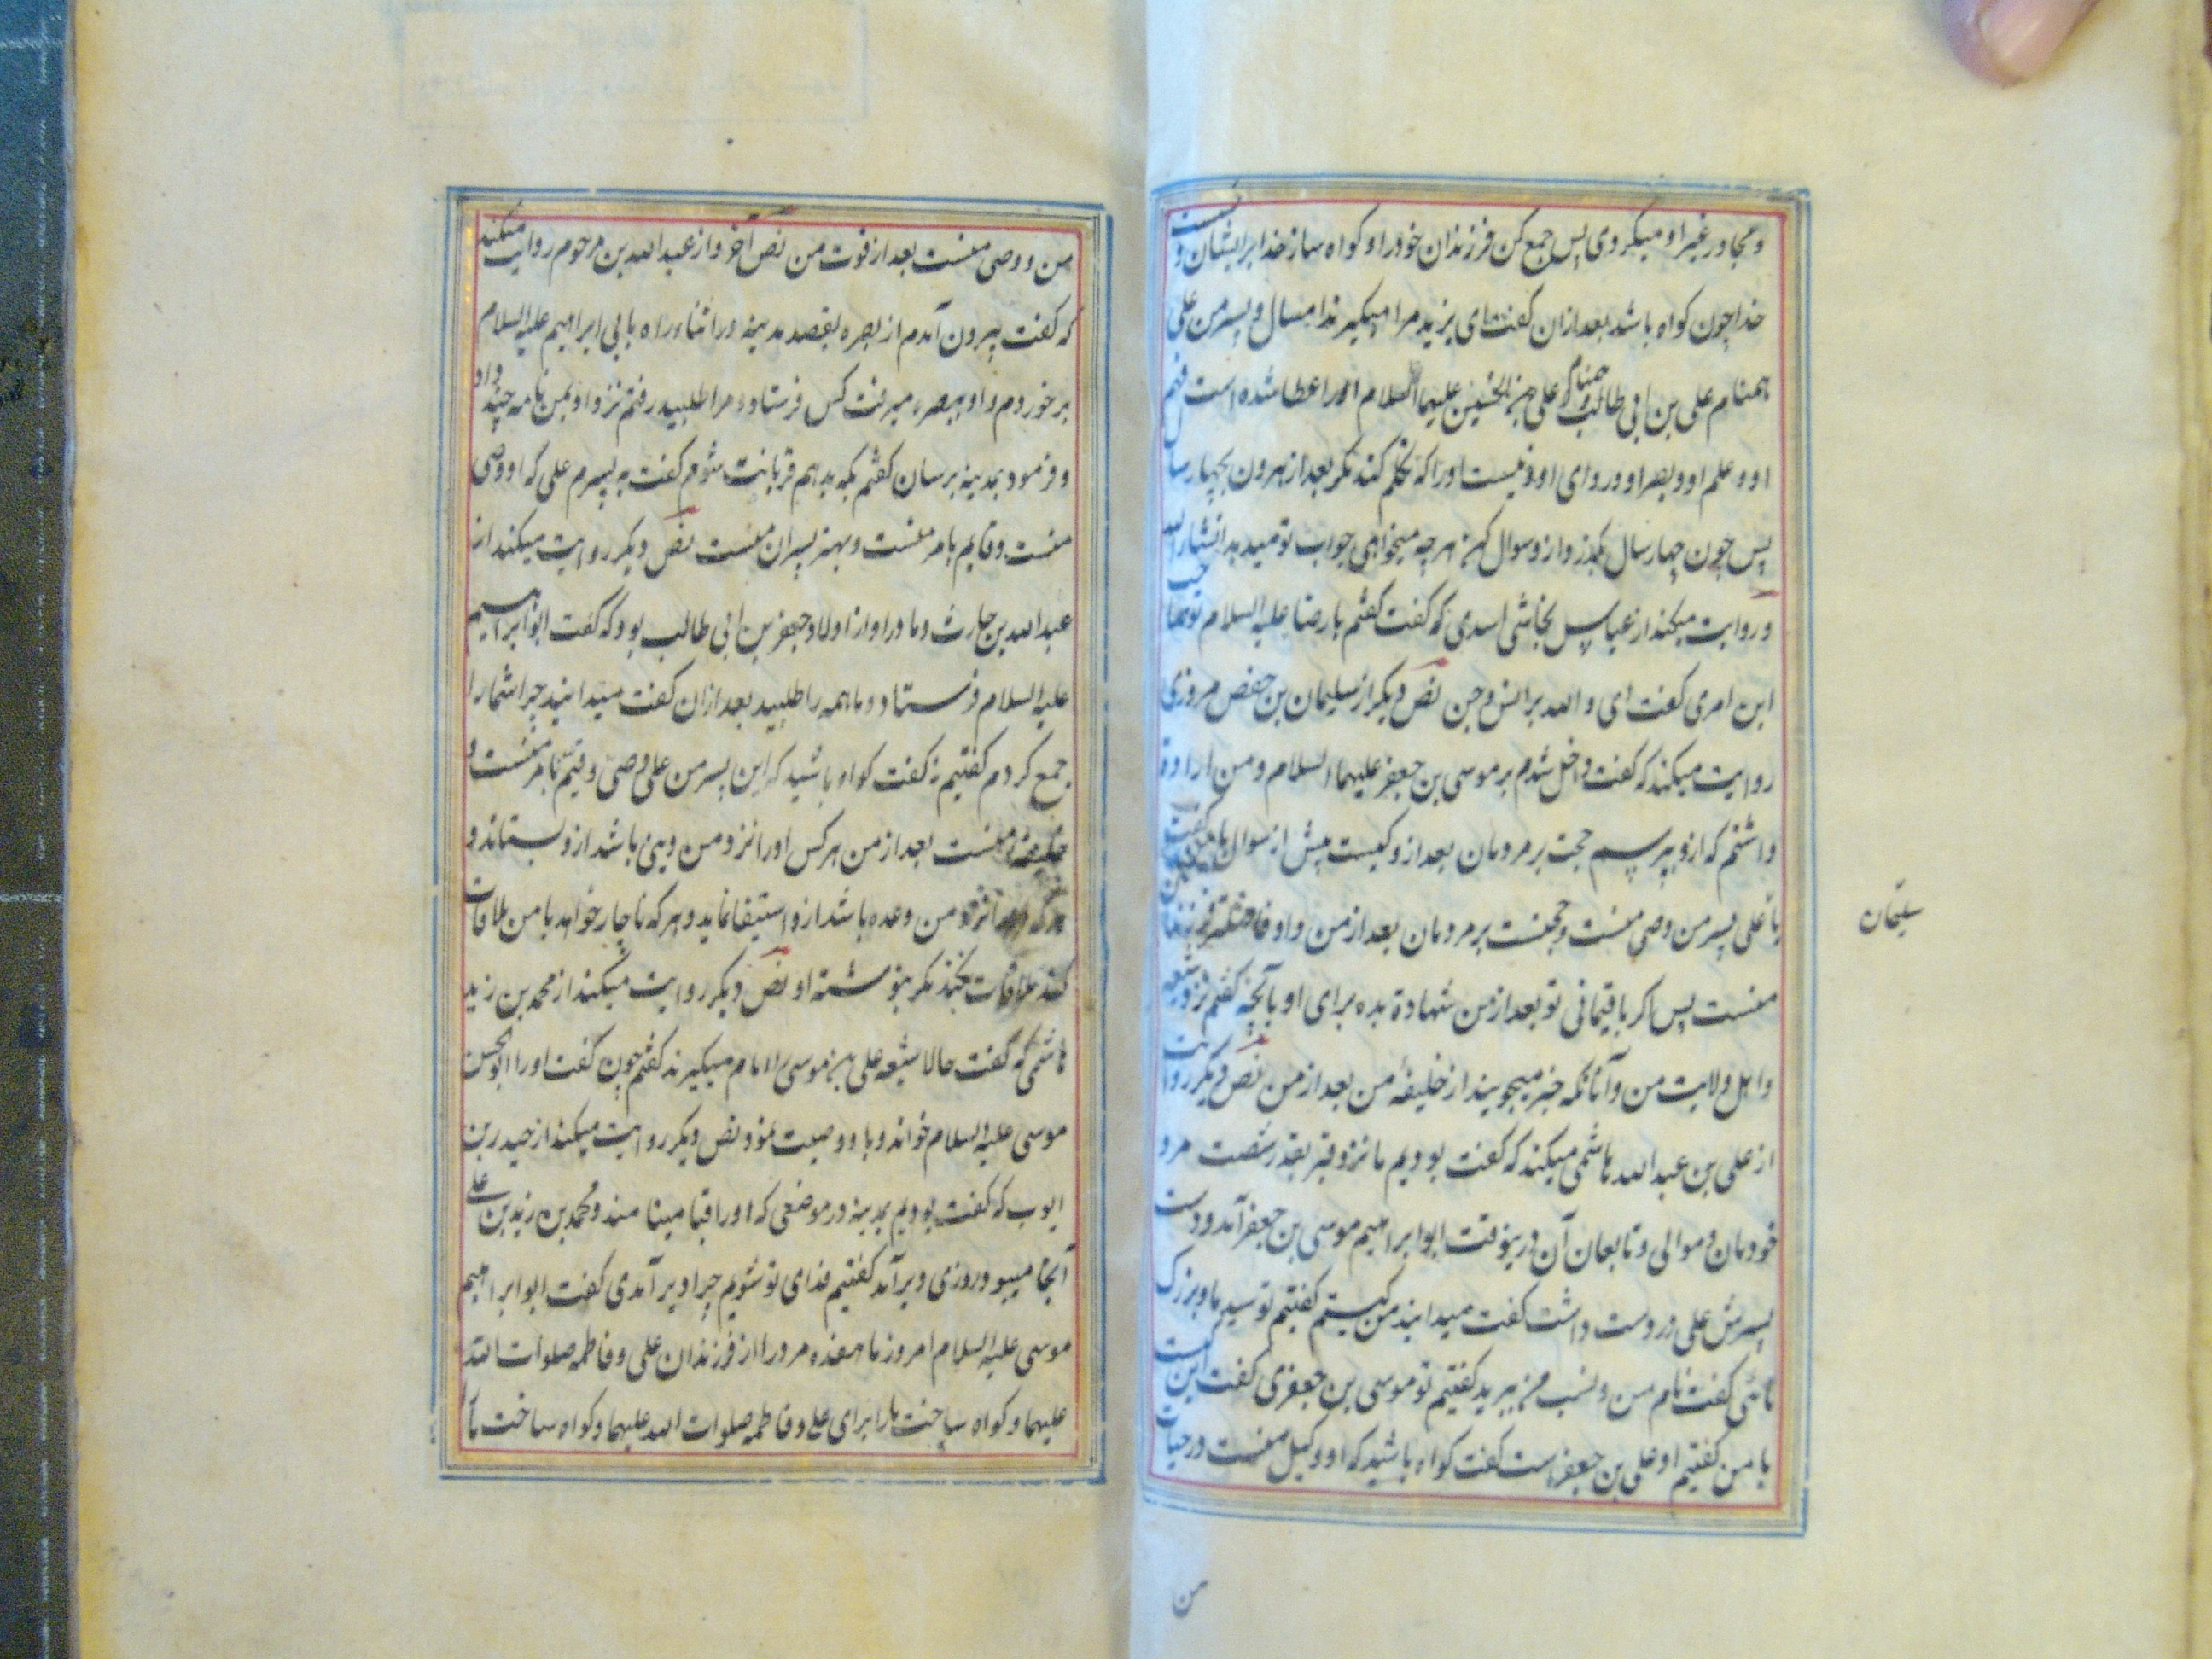 و مجاور غیر او میکردی پس جمع کن فرزندان خود را و کواه ساز خدا بر ایشان و
خدا چون کواه باشد بعد ازان کفت ای یزید مرا میکیرند امسال و پسر من علی
همنام علی بن ابی طالب و همنام علی بن الحسین علیهما السلام اورا عطا شده است فهم
او و علم او و بصر او و ردای او و نیست اورا که تکلم کند مکر بعد از هرون بچهار سال
پس چون چهار سال بکذرد ازو سوال کن هرچه میخواهی جواب تو میدهد انشاء الله
و روایت میکند از عباس نجاشی اسدی که کفت کفتم با رضا علیه السلام تو صاحب
این امری کفت ای والله بر انس و جن نص دیکر از سلیمان بن حفص مروزی
روایت میکند که کفت داخل شدم بر موسی بن جعفر علیهما السلام و من اراده
داشتم که ازو بپرسم حجت بر مردمان بعد ازو کیست پیش از سوال ما کفت
یا علی پسر من وصی منست و حجت بر مردمان بعد از من و او فاضلترین
منست پس اکر باقیمانی تو بعد از من شهادة بده برای او بآنچه کفتم نزد شیعه
و اهل ولایت من و آنانکه خبر میجویند از خلیفهٔ من بعد از من نص دیکر روایت
از علی بن عبد الله هاشمی میکند که کفت بودیم ما نزد قبر بقدر شصت مرد
خودمان و موالی و تابعان آن درینوقت ابو ابراهیم موسی بن جعفر آمد و دست
پسرش علی در دست داشت کفت میدانید من کیستم کفتیم تو سید ما و بزرک
مائی کفت نام من و نسب من ببرید کفتیم تو موسی بن جعفری کفت این کیست
با من کفتیم او علی بن جعفر است کفت کواه باشید که او وکیل منست در حیات
سلیمان
من
من و وصی منست بعد از فوت من نص آخر و از عبد الله بن مرحوم روایت میکند
که کفت بیرون آمدم از بصره بقصد مدینه در اثناء راه با ابی ابراهیم علیه السلام
بر خوردم و او ببصره میرفت کس فرستاد و مرا طلبید رفتم نزد او بمن نامه چند داد
و فرمود بمدینه برسان کفتم بکه بدهم قربانت شوم کفت به پسرم علی که او وصی
منست و قایم بامر منست و بهتر پسران منست نص دیکر روایت میکند از
عبد الله بن حارث و مادر او از اولاد جعفر بن ابی طالب بود که کفت ابو ابراهیم
علیه السلام فرستاد و ما همه را طلبید بعد ازان کفت میدانید چرا شما را
جمع کردم کفتیم نه کفت کواه باشید که این پسر من علی وصی و قیم بامر منست و
خلیفه منست بعد از من هر کس اورا نزد من دینی باشد ازو بستاند و
هر که اورا نزد من وعده باشد ازو استیفا نماید و هر که ناچار خواهد با من ملاقات
کند ملاقات نکند مکر بنوشته او نص دیکر روایت میکند از محمد بن زید
هاشمی که کفت حالا شیعه علی بن موسی را امام میکیرند کفتم چون کفت اورا ابو الحسن
موسی علیه السلام خواند و با او وصیت نمود نص دیکر روایت میکند از حیدر بن
ایوب که کفت بودیم بمدینه در موضعی که اورا قبا مینامند و محمد بن زید بن علی
آنجا میبود روزی دیر آمد کفتیم فدای تو شویم چرا دیر آمدی کفت ابو ابراهیم
موسی علیه السلام امروز ما هفده مرد را از فرزندان علی و فاطمه صلوات الله
علیهما و کواه ساخت ما را برای علی و فاطمه صلوات الله علیهما و کواه ساخت ما